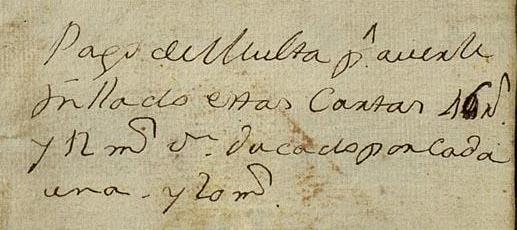 Pago de Multa pr. averle
hallado estas Cartas 46 rs.
y 12 ms. vn. ducado por Cada
una - y 20 ms.